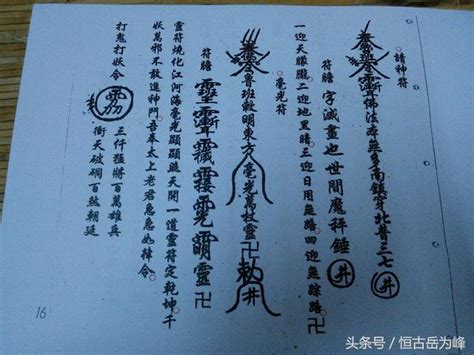 請神符
佛法本無多南鎮守北普三七井
符膽 字減畫也世間魔秤錘井
一迎天朦朧二迎地黑暗三迎日月無路四迎無蹤路卍
毫光符
魯班敕明東方毫光萬枝靈卍勅井
符膽 靈
靈符燒化江河海毫光顯顯照天開一道靈符定乾坤千
妖萬邪不敢進神門吾奉太上老君急急如律令
打鬼打妖令
三仟猛將百萬雄兵
衝天破洞百煞朝廷
16
头条号/恒古岳为峰